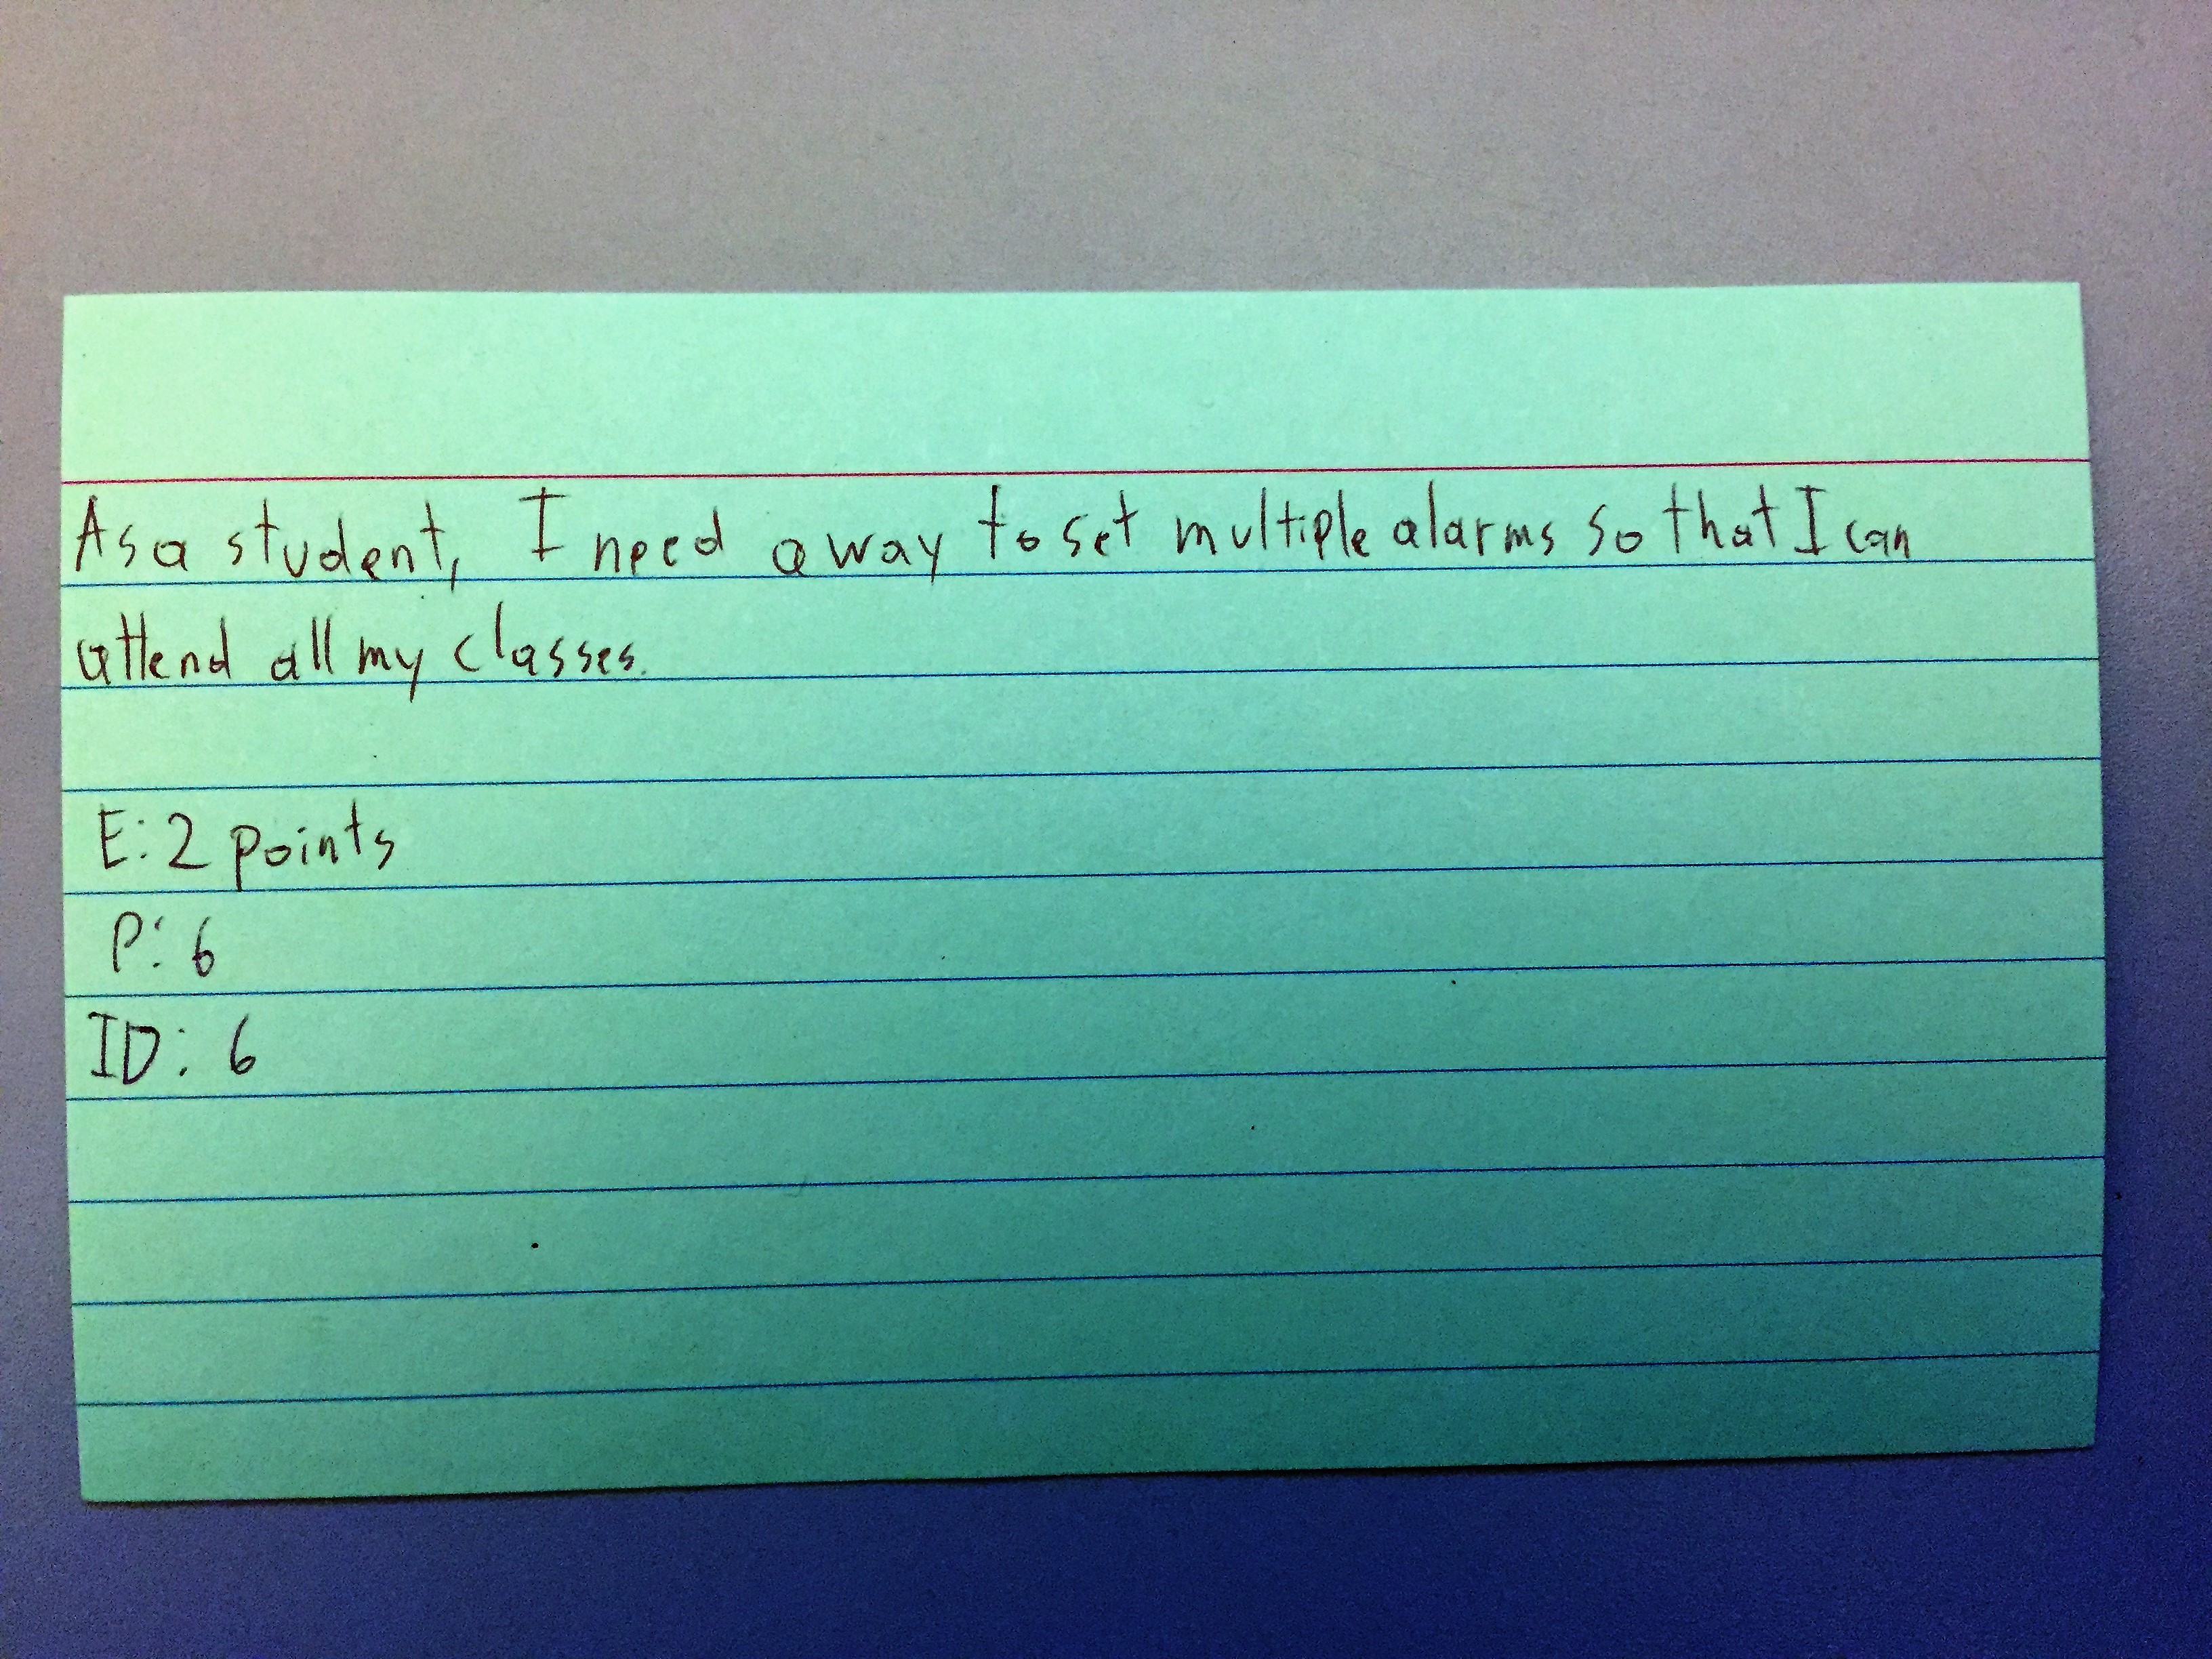 As a student, I need a way to set multiple alarms so that I can
attend all my classes.
E: 2 points
P: 6
ID: 6